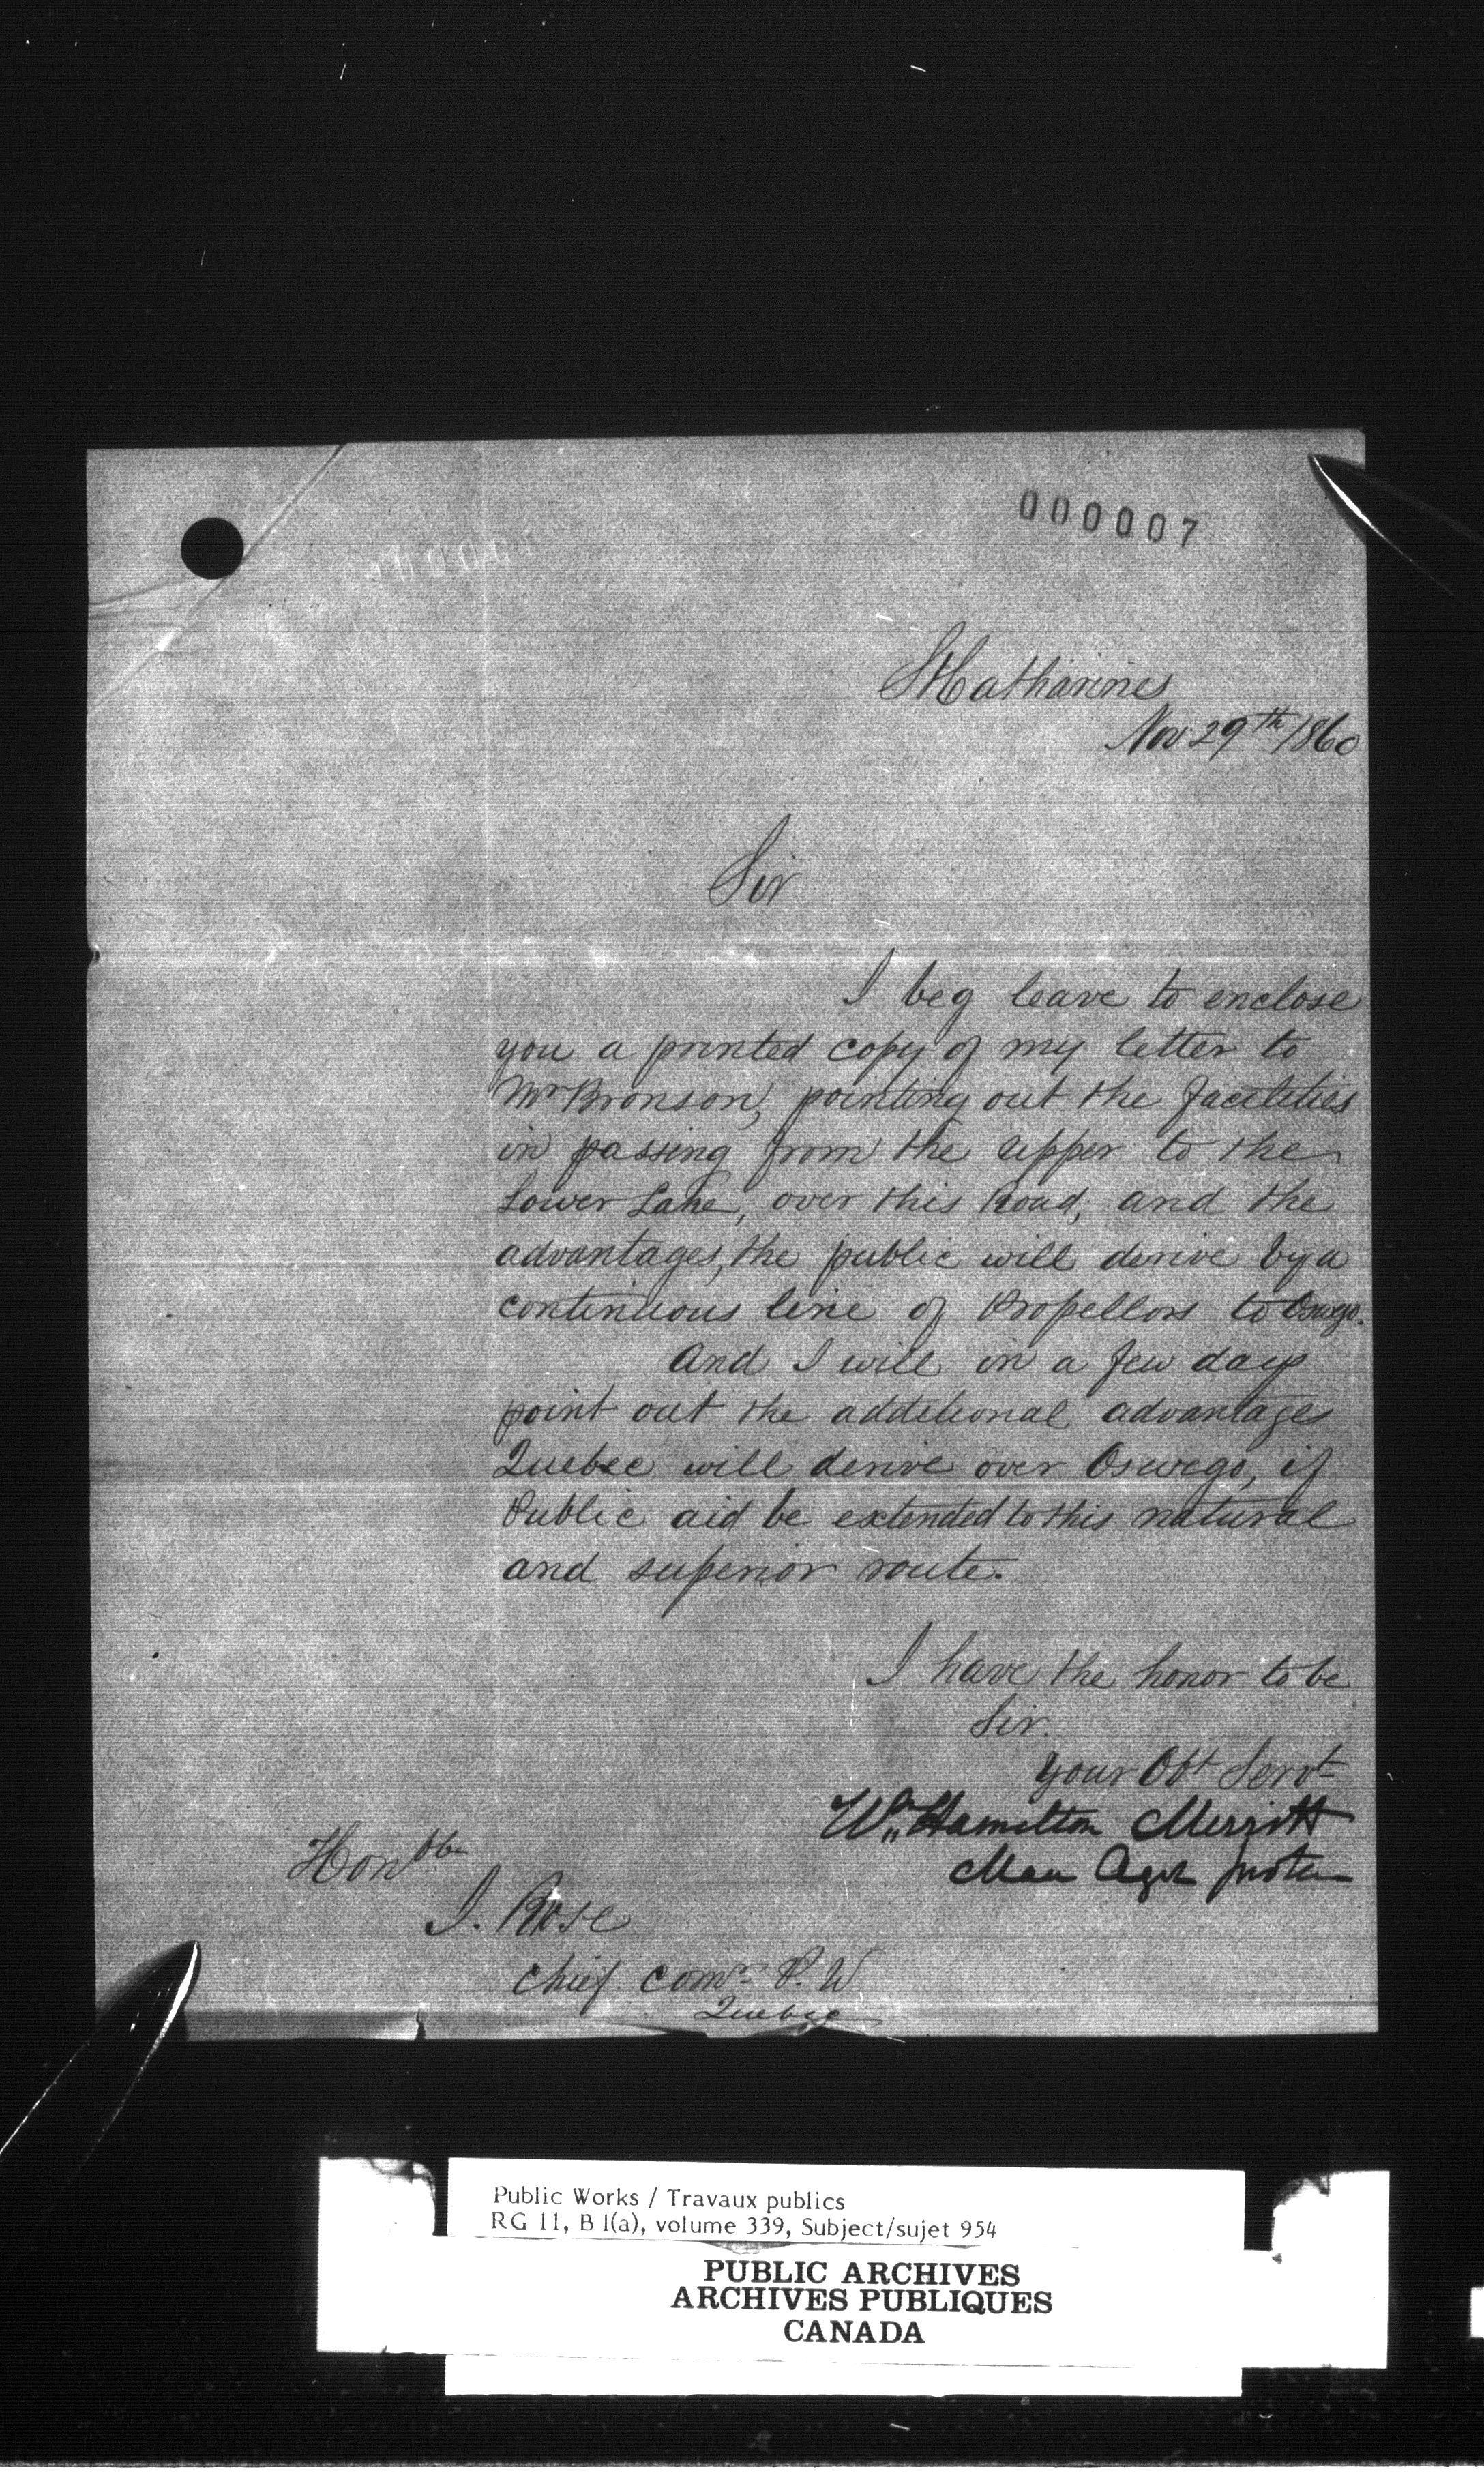 000007
St Catharines
Nov 29th 1860
Sir
I beg leave to enclose
you a printed copy of my letter to
Mr Bronson, pointing out the facilities
in passing from the upper to the
Lower Lake, over this Road, and the
advantages, the public will derive by a
continuous line of Propellors to Oswego.
And I will in a few days
point out the additional advantages
Quebec will derive over Oswego, if
Public aid be extended to this natural
and superior route.
I have the honor to be
Sir.
your Obt Servt
Wm Hamilton Merritt
Honble
J. Rose
Chief. Comr. P. W
Quebec
Public Works / Travaux publics
RG 11, B 1(a), volume 339, Subject/sujet 954
PUBLIC ARCHIVES
ARCHIVES PUBLIQUES
CANADA